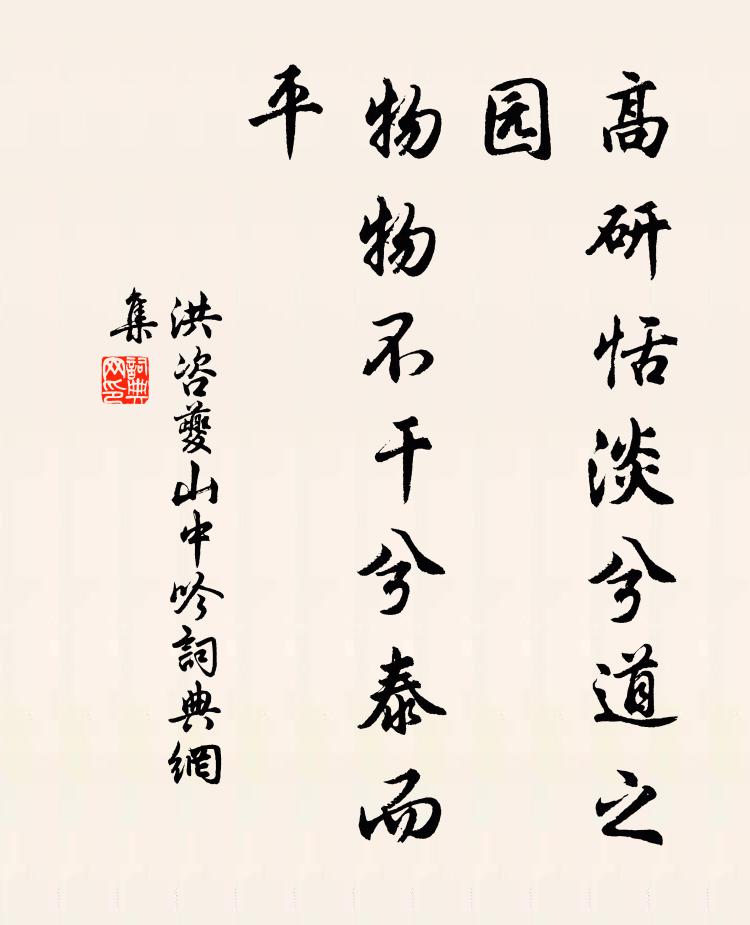 高研恬淡兮道之
园
物物不干兮泰而
平
洪咨夔山中吟詞典網
集
詞典
网印